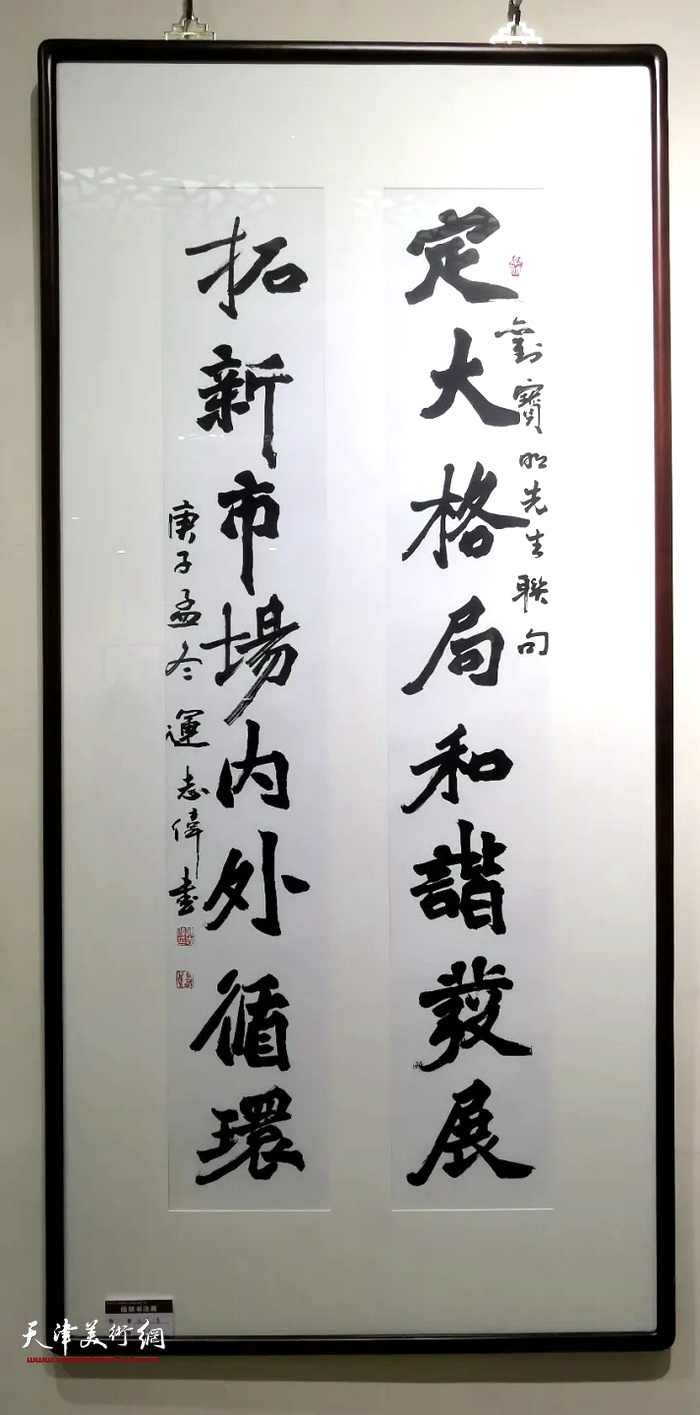 定大格局和諧發展
劉寶明先生聯句
拓新市場内外循環
庚子孟冬運志偉書
楹联书法展
天津美術網